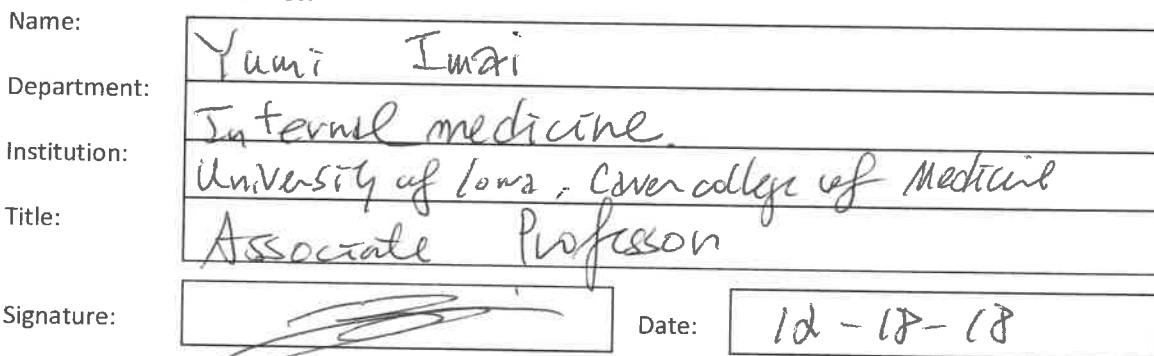 Name: Yumi Imai
Department: Internal medicine.
Institution: University of Iowa, Carver college of Medicine
Title: Associate Professor
Signature: Date: 12-18-18